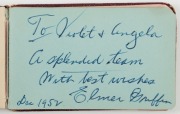 To Violet & Angela
A splendid team
With best wishes
Elmer
Dec 1952